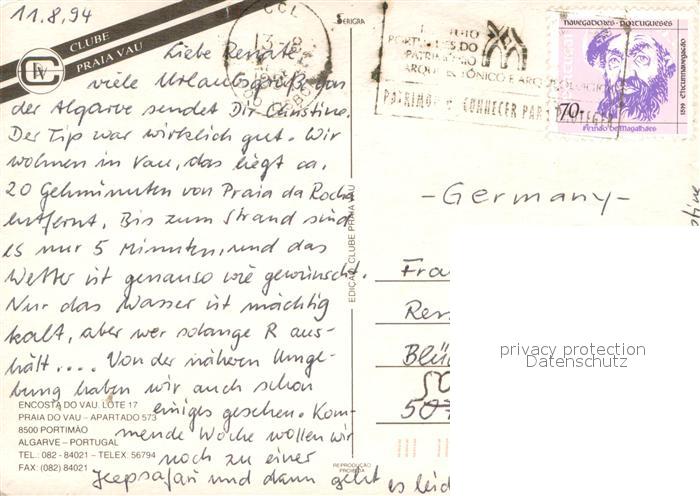 11.8.94
CLUBE
PRAIA VAU
Liebe Renate
viele Urlaubsgrüße von
der Algarve sendet Dir Christine.
Der Tip war wirklich gut. Wir
wohnen in Vau, das liegt ca.
20 Gehminuten von Praia da Rocha
entfernt. Bis zum Strand sind
es nur 5 Minuten, und das
Wetter ist genauso wie gewünscht.
Nur das Wasser ist mächtig
kalt, aber wer solange R aus-
hält.... Von der nähern Umge-
bung haben wir auch schon
einiges gesehen. Kom-
mende Woche wollen wir
noch zu einer
Jeepsafari und dann geht es leid
ENCOSTA DO VAU. LOTE 17
PRAIA DO VAU – APARTADO 573
8500 PORTIMÃO
ALGARVE – PORTUGAL
TEL.: 082 - 84021 – TELEX: 56794
FAX: (082) 84021
SERIGRA
EDIÇÃO CLUBE PRAIA VAU
REPRODUÇÃO
PROIBIDA
CCI
PORTUGUÊS DO
PATRIMÓNIO
ARQUITECTÓNICO E
PATRIMÓNIO CONHECER PARA PROTEGER
NAVEGADORES PORTUGUESES
Portugal
70
Fernão de Magalhães
1519 Circumnavegação
- Germany -
Fra
Ren
Blü
50
507
stine
privacy protection
Datenschutz